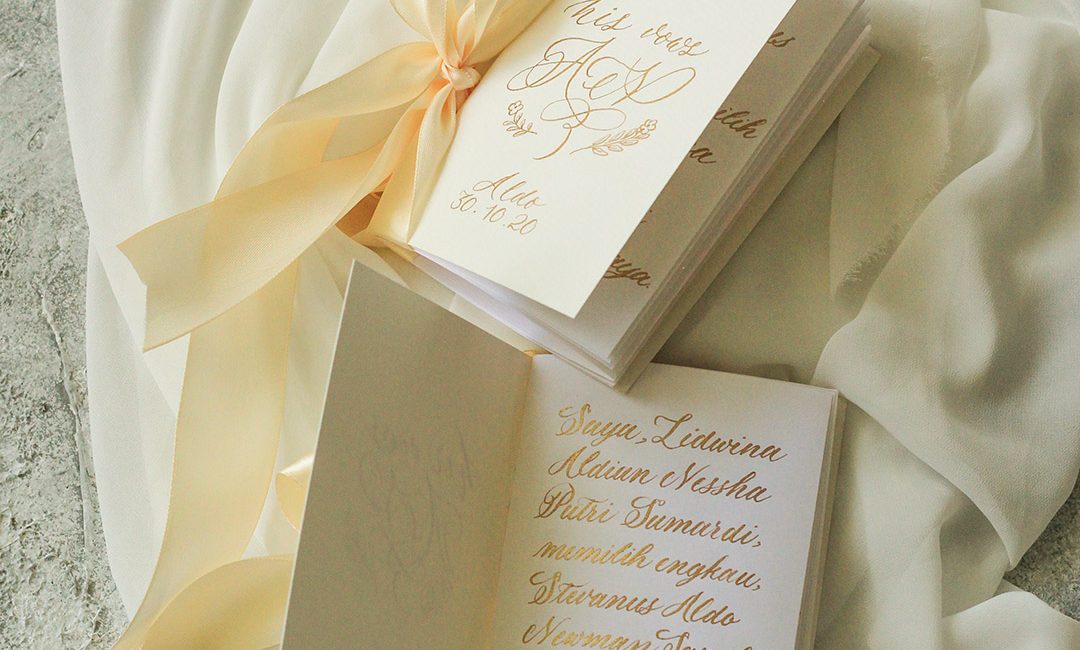 his vows
A & N
Aldo
30.10.20
milih
aya.
Saya, Lidwina
Aldiun Nessha
Putri Sumardi,
memilih engkau,
Stevanus Aldo
Newman